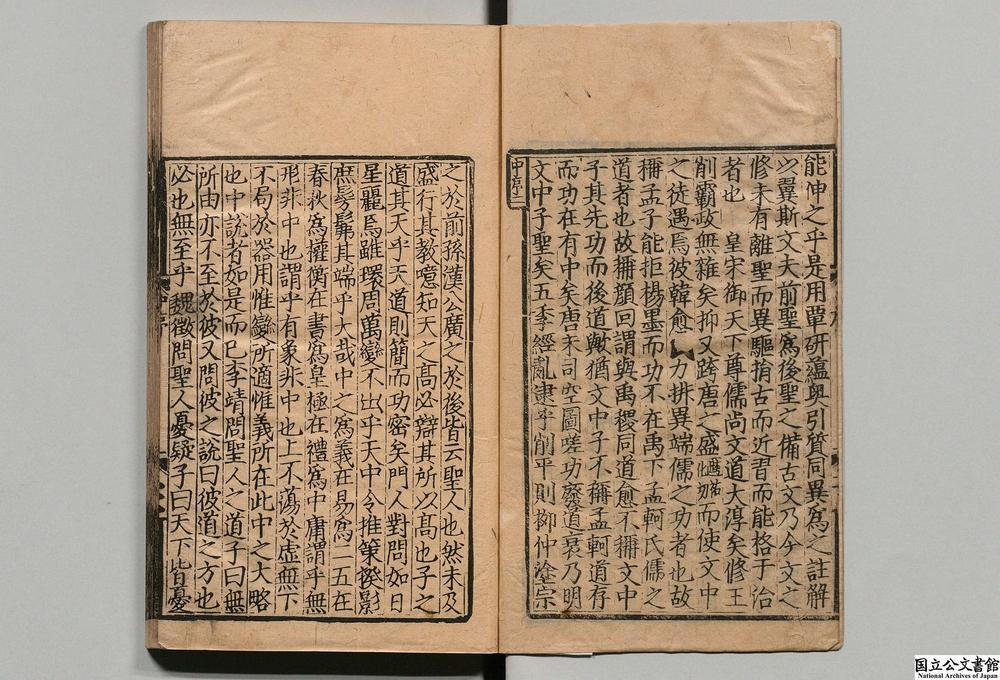 能伸之乎是用覃研蘊奥引質同異爲之註解
以翼斯文夫前聖爲後聖之備古文乃今文之
修未有離聖而異驅捐古而近習而能格于治
者也 皇宋御天下尊儒尚文道大淳矣修王
削霸政無雜矣抑又跨唐之盛而使文中
之徒遇焉彼韓愈 力排異端儒之功者也故
稱孟子能拒楊墨而功不在禹下孟軻氏儒之
道者也故稱顔回謂與禹稷同道愈不稱文中
子其先功而後道歟猶文中子不稱孟軻道存
而功在有中矣唐末司空圖嗟功廢道衰乃明
文中子聖矣五季經亂逮乎削平則柳仲塗宗
中序二
之於前孫漢公廣之於後皆云聖人也然未及
盛行其教噫知天之高必辯其所以高也子之
道其天乎天道則簡而功密矣門人對問如日
星麗焉雖環周萬變不出乎天中今推策揆影
庶髣髴其端乎大哉中之爲義在易爲二五在
春秋爲權衡在書爲皇極在禮爲中庸謂乎無
形非中也謂乎有象非中也上不蕩於虛無下
不局於器用惟變所適惟義所在此中之大略
也中說者如是而已李靖問聖人之道子曰無
所由亦不至於彼又問彼之說曰彼道之方也
必也無至乎 魏徵問聖人憂疑子曰天下皆憂
国立公文書館
National Archives of Japan